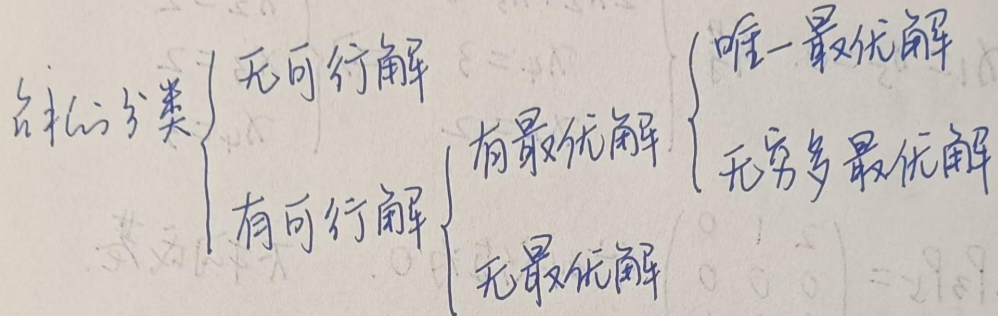 分类
无可行解
有可行解
有最优解
无最优解
唯一最优解
无穷多最优解